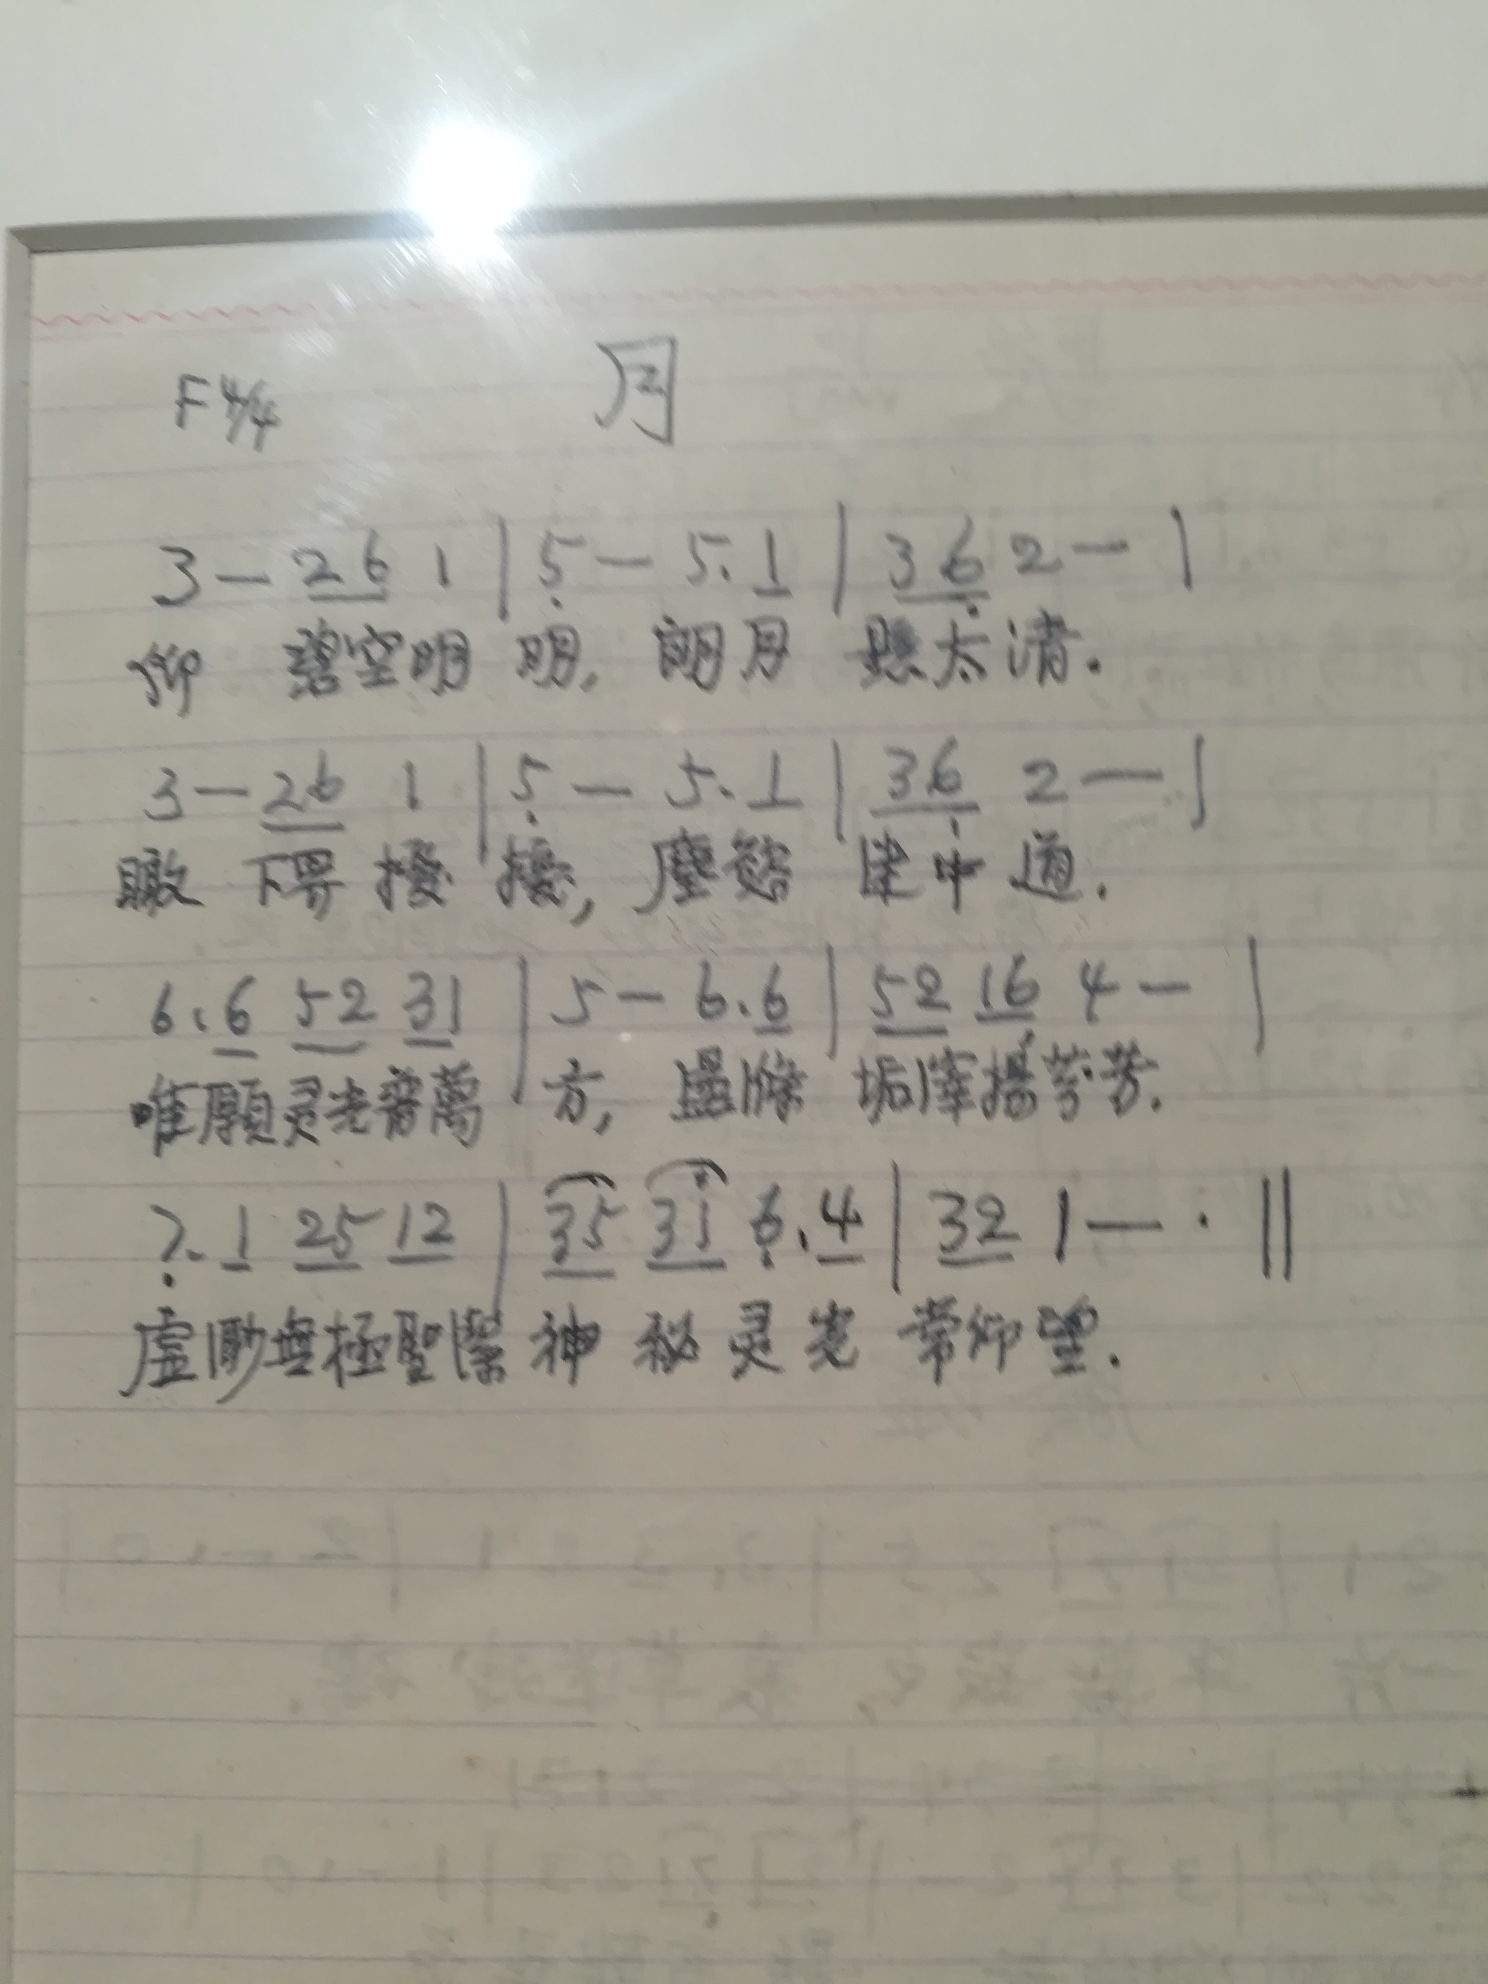 F 4/4 月
3 — 2 6 1 | 5 — 5. 1 | 3 6 2 — |
仰 碧空明 明, 朗月 懸太清.
3 — 2 6 1 | 5 — 5. 1 | 3 6 2 — |
瞰 下界 擾 擾, 塵慾 中 道.
6. 6 5 2 3 1 | 5 — 6. 6 | 5 2 1 6 4 — |
唯願灵光普萬 方, 盪滌 垢滓揚芬芳.
7. 1 2 5 1 2 | 3 5 3 1 6. 4 | 3 2 1 — · ||
虛渺無極聖潔 神 秘 灵 光 常仰望.